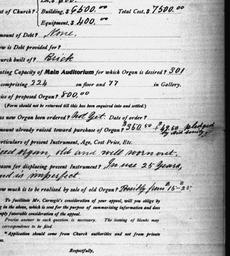 of Church? { Building, $6500.00 Total Cost, $7500.00
Equipment, $400.00
mount of Debt? None.
w is Debt provided for?
urch built of? Brick
ating Capacity of Main Auditorium for which Organ is desired? 301
comprising 224 on floor and 77 in Gallery.
ice of proposed Organ? $00.00
(Form should not be returned till this has been enquired into and settled.)
s new Organ been ordered? Not Yet. Date of order?
mount already raised toward purchase of Organ? $350.00
rticulars of present Instrument, Age, Cost Price, Etc.
eed organ, Old and well worn out.
eason for displacing present Instrument? In use 25 years,
nd is imperfect
ow much is to be realized by sale of old Organ? Possibly from 15-25
To facilitate Mr. Carnegie's consideration of your appeal, will you oblige by
ing in the above, which is sent for purpose of summarizing information and does
mply favorable consideration of the appeal.
Precise answer to each question is necessary. The issuing of blanks may
correspondence to be filed
* Application should come from Church authorities and not from private
Respectfully,